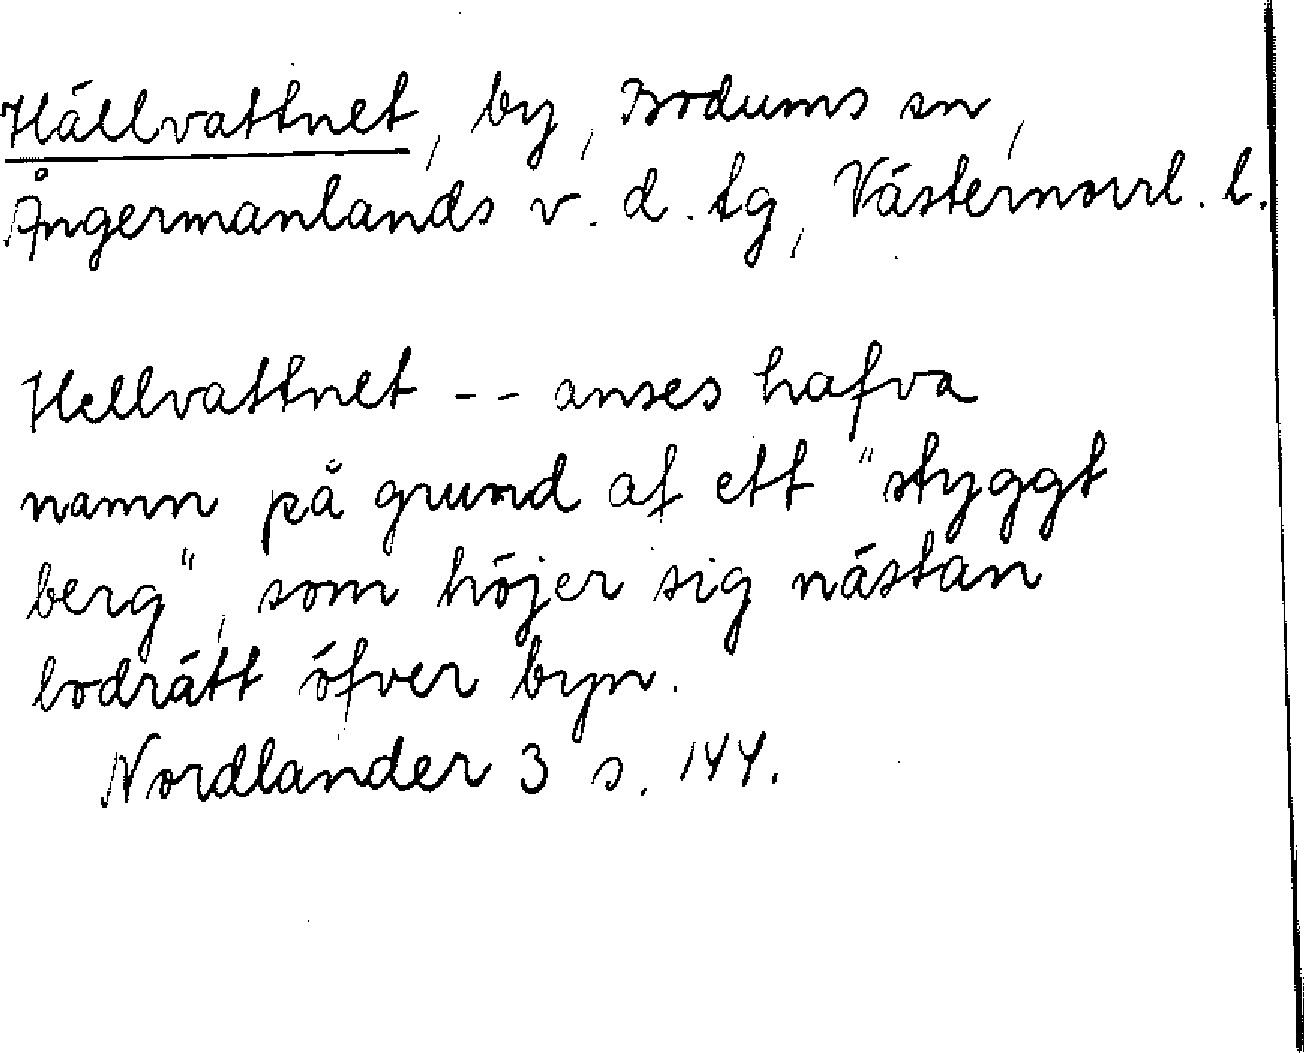 Hällvattnet, by, Bodums sn,
Ångermanlands v. d. tg, Västernorrl. l.
Hellvattnet -- anses hafva
namn på grund af ett "styggt
berg", som höjer sig nästan
lodrätt öfver byn.
Nordlander 3 s. 144.